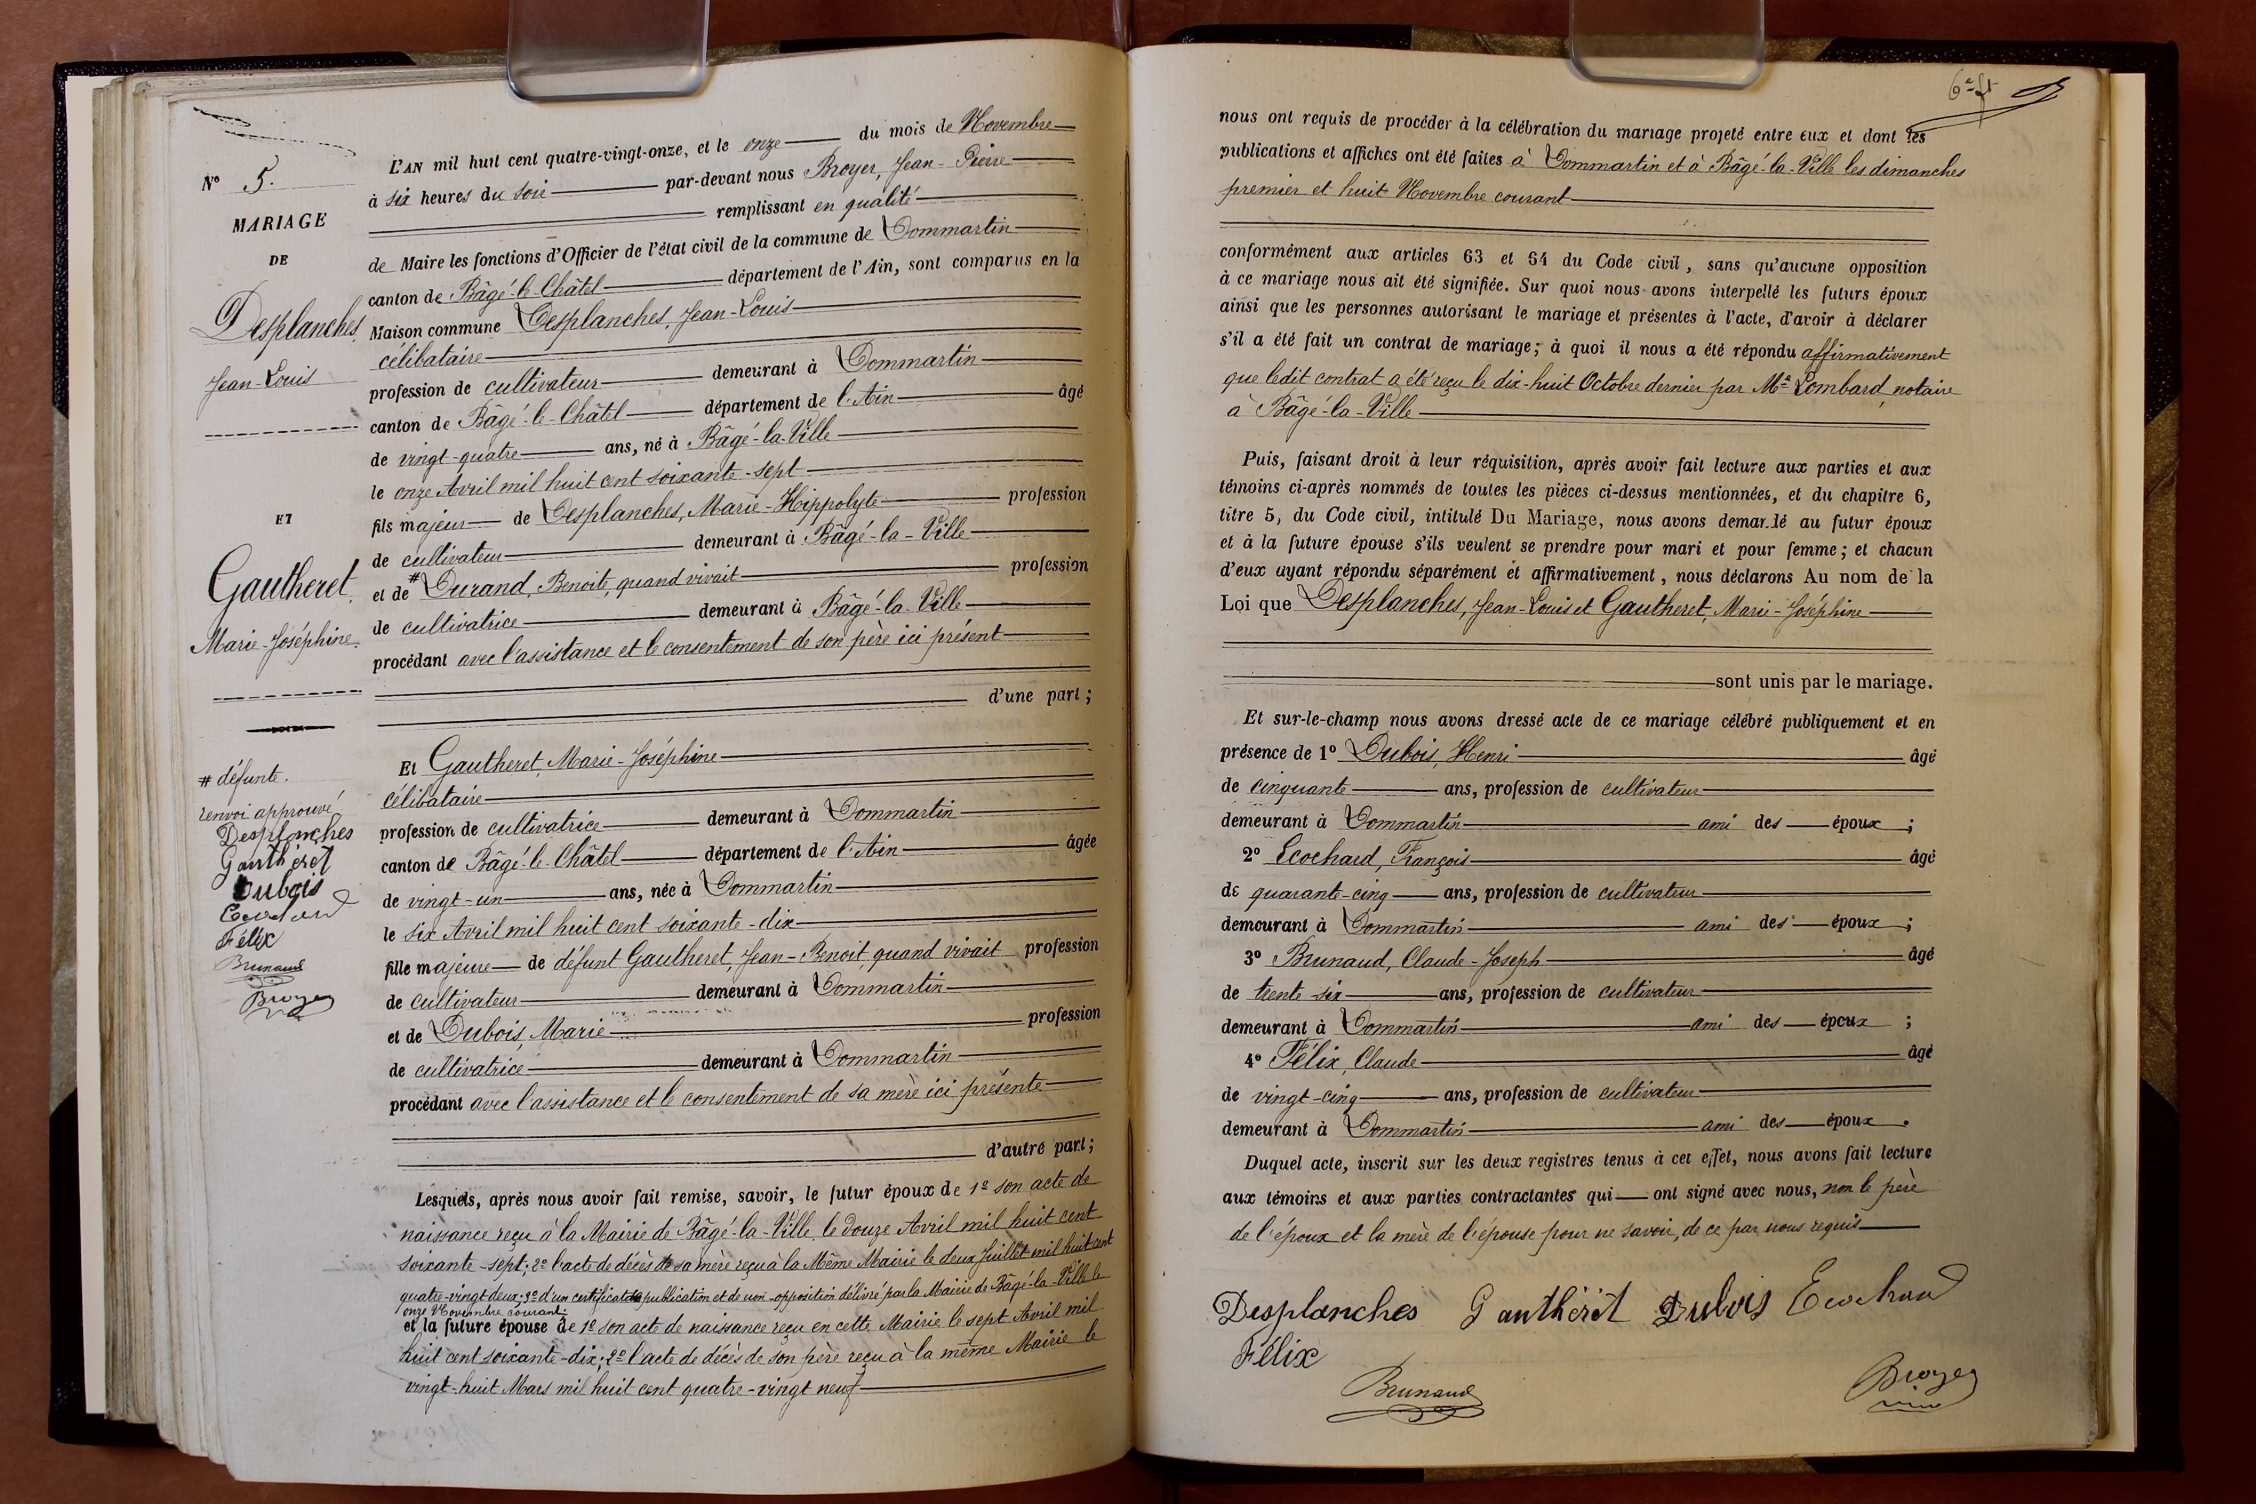 N° 5.
MARIAGE
DE
Desplanches,
Jean-Louis
ET
Gautheret,
Marie-Joséphine.
# défunte.
renvoi approuvé
Desplanches
Gauthéret
Dubois
Ecochard
Félix
Brunaud
Broyer
L'AN mil huit cent quatre-vingt-onze, et le onze du mois de Novembre
à six heures du soir par-devant nous Broyer, Jean-Pierre
remplissant en qualité
de Maire les fonctions d'Officier de l'état civil de la commune de Dommartin
canton de Bâgé-le-Châtel département de l'Ain, sont comparus en la
Maison commune Desplanches, Jean-Louis
célibataire
profession de cultivateur demeurant à Dommartin
canton de Bâgé-le-Châtel département de l'Ain âgé
de vingt-quatre ans, né à Bâgé-la-Ville
le onze Avril mil huit cent soixante-sept
fils majeur de Desplanches, Marie-Hippolyte profession
de cultivateur demeurant à Bâgé-la-Ville
et de # Durand, Benoite, quand vivait profession
de cultivatrice demeurant à Bâgé-la-Ville
procédant avec l'assistance et le consentement de son père ici présent
d'une part ;
Et Gautheret, Marie-Joséphine
célibataire
profession de cultivatrice demeurant à Dommartin
canton de Bâgé-le-Châtel département de l'Ain âgée
de vingt-un ans, née à Dommartin
le six Avril mil huit cent soixante-dix
fille majeure de défunt Gautheret, Jean-Benoit, quand vivait profession
de cultivateur demeurant à Dommartin
et de Dubois, Marie profession
de cultivatrice demeurant à Dommartin
procédant avec l'assistance et le consentement de sa mère ici présente
d'autre part ;
Lesquels, après nous avoir fait remise, savoir, le futur époux de 1° son acte de
naissance reçu à la Mairie de Bâgé-la-Ville, le douze Avril mil huit cent
soixante-sept; 2° l'acte de décès de sa mère reçu à la Même Mairie le deux Juillet mil huit cent
quatre-vingt-deux; 3° d'un certificat de publication et de non-opposition délivré par la Mairie de Bâgé-la-Ville le
onze Novembre courant;
et la future épouse de 1° son acte de naissance reçu en cette Mairie le sept Avril mil
huit cent soixante-dix; 2° l'acte de décès de son père reçu à la même Mairie le
vingt-huit Mars mil huit cent quatre-vingt neuf
nous ont requis de procéder à la célébration du mariage projeté entre eux et dont les
publications et affiches ont été faites à Dommartin et à Bâgé-la-Ville les dimanches
premier et huit Novembre courant
conformément aux articles 63 et 64 du Code civil, sans qu'aucune opposition
à ce mariage nous ait été signifiée. Sur quoi nous avons interpellé les futurs époux
ainsi que les personnes autorisant le mariage et présentes à l'acte, d'avoir à déclarer
s'il a été fait un contrat de mariage ; à quoi il nous a été répondu affirmativement
que ledit contrat a été reçu le dix-huit Octobre dernier par Me Lombard, notaire
à Bâgé-la-Ville
Puis, faisant droit à leur réquisition, après avoir fait lecture aux parties et aux
témoins ci-après nommés de toutes les pièces ci-dessus mentionnées, et du chapitre 6,
titre 5, du Code civil, intitulé Du Mariage, nous avons demandé au futur époux
et à la future épouse s'ils veulent se prendre pour mari et pour femme ; et chacun
d'eux ayant répondu séparément et affirmativement, nous déclarons Au nom de la
Loi que Desplanches, Jean-Louis et Gautheret, Marie-Joséphine
sont unis par le mariage.
Et sur-le-champ nous avons dressé acte de ce mariage célébré publiquement et en
présence de 1° Dubois, Henri âgé
de cinquante ans, profession de cultivateur
demeurant à Dommartin ami des époux ;
2° Ecochard, François âgé
de quarante-cinq ans, profession de cultivateur
demeurant à Dommartin ami des époux ;
3° Brunaud, Claude-Joseph âgé
de trente-six ans, profession de cultivateur
demeurant à Dommartin ami des époux ;
4° Félix, Claude âgé
de vingt-cinq ans, profession de cultivateur
demeurant à Dommartin ami des époux .
Duquel acte, inscrit sur les deux registres tenus à cet effet, nous avons fait lecture
aux témoins et aux parties contractantes qui ont signé avec nous, non le père
de l'époux et la mère de l'épouse pour ne savoir, de ce par nous requis
Desplanches Gauthérèt Dubois Ecochard
Félix
Brunaud
Broyer